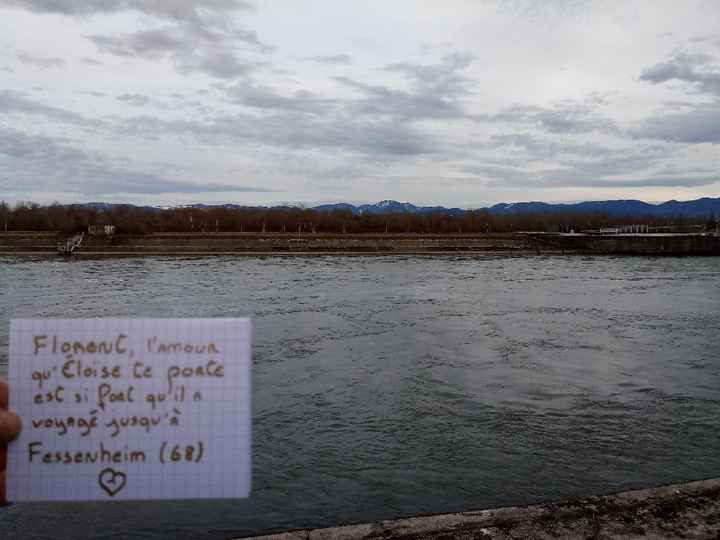 Florent, l'amour
qu'Éloïse te porte
est si fort qu'il a
voyagé jusqu'à
Fessenheim (68)